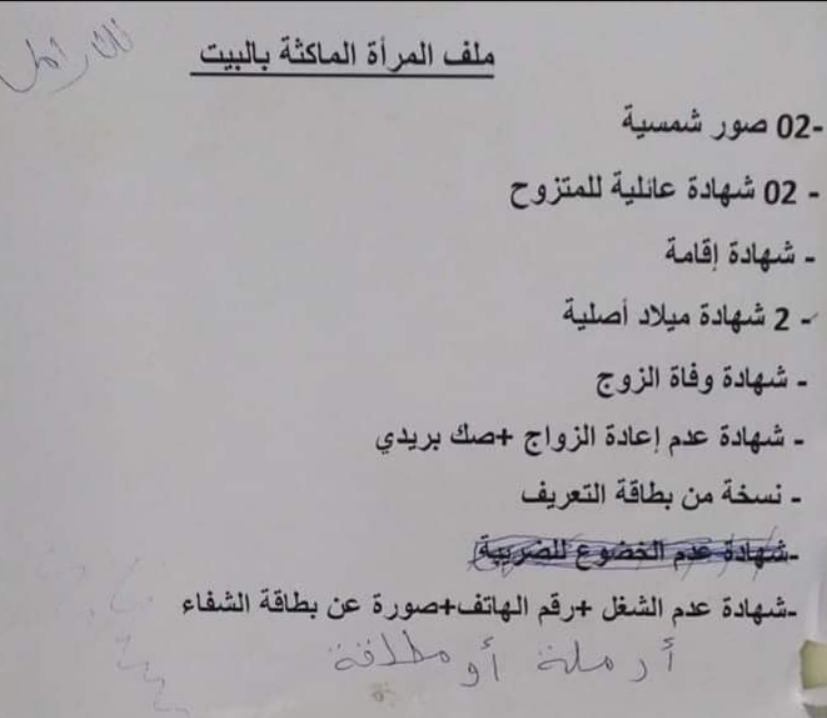 ملف المرأة الماكثة بالبيت
-02 صور شمسية
- 02 شهادة عائلية للمتزوح
- شهادة إقامة
- 2 شهادة ميلاد أصلية
- شهادة وفاة الزوج
- شهادة عدم إعادة الزواج +صك بريدي
- نسخة من بطاقة التعريف
-شهادة عدم الخضوع للضريبة
-شهادة عدم الشغل +رقم الهاتف+صورة عن بطاقة الشفاء
أرملة أو مطلقة